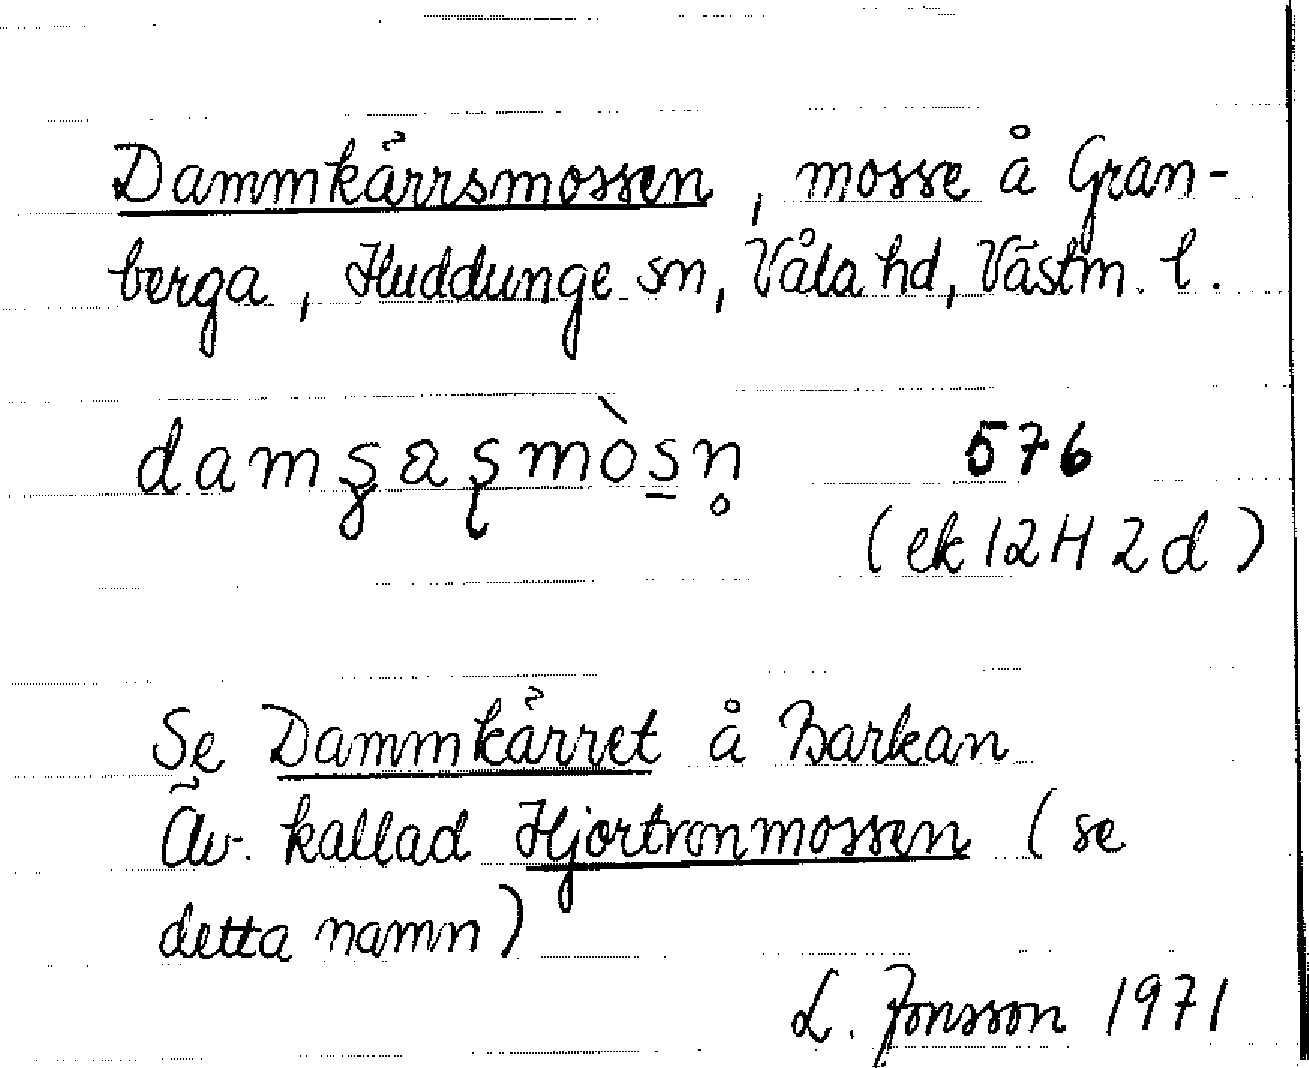 Dammkärrsmossen, mosse å Gran-
berga, Huddunge sn, Våla hd, Västm. l.
576
(ek 12H 2d)
Se Dammkärret å Barkan
Äv. kallad Hjortronmossen (se
detta namn)
L. Jonsson 1971